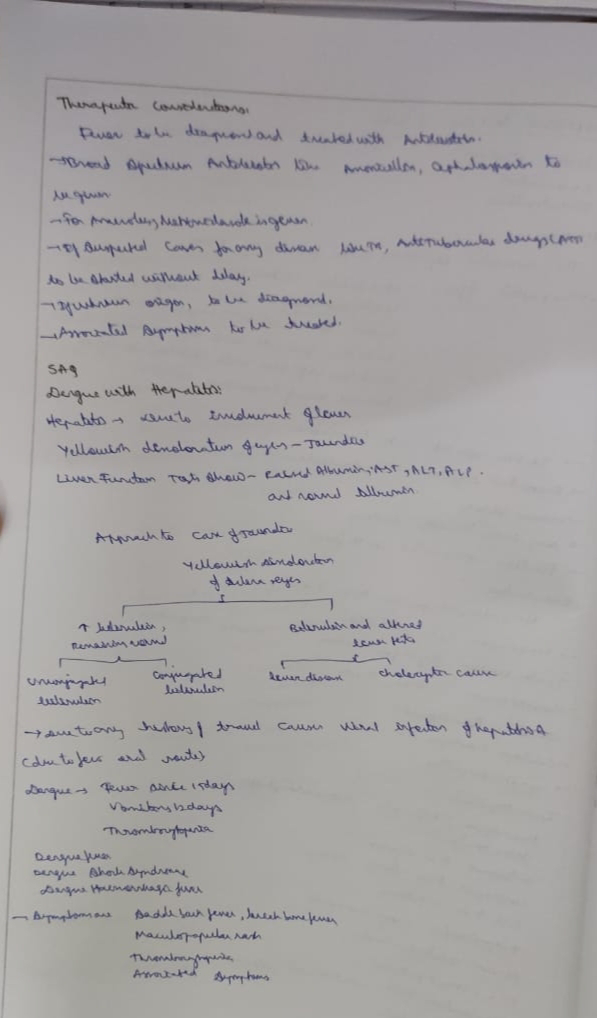 Therapeutic Considerations:
Fever to be diagnosed and treated with Antibiotics.
→ Broad Spectrum Antibiotics like Amoxicillin, Cephalosporin to
be given
→ For Anaerobes, Metronidazole is given.
→ If Suspected Cases for any disease like TB, Antitubercular drugs (ATT)
to be started without delay.
→ If unknown origin, to be diagnosed.
→ Associated Symptoms to be treated.
SAQ
Dengue with Hepatitis:
Hepatitis → due to involvement of liver
Yellowish discoloration of eyes - Jaundice
Liver Function Tests Show - Raised Albumin, AST, ALT, ALP.
and normal Albumin.
Approach to Case of Jaundice
Yellowish discoloration
of sclera eyes
↑ bilirubin,
remaining normal
Bilirubin and altered
liver tests
Unconjugated
bilirubin
Conjugated
bilirubin
liver disease
cause
→ due to any history of travel causes viral infection of hepatitis A
(due to feco oral route)
Dengue → Fever since days
Vomiting days
Thrombocytopenia
Dengue fever
Dengue Shock Syndrome
Dengue Haemorrhagic fever
→ Symptoms are Saddle back fever, break bone fever
Maculopapular rash
Thrombocytopenia
Associated Symptoms